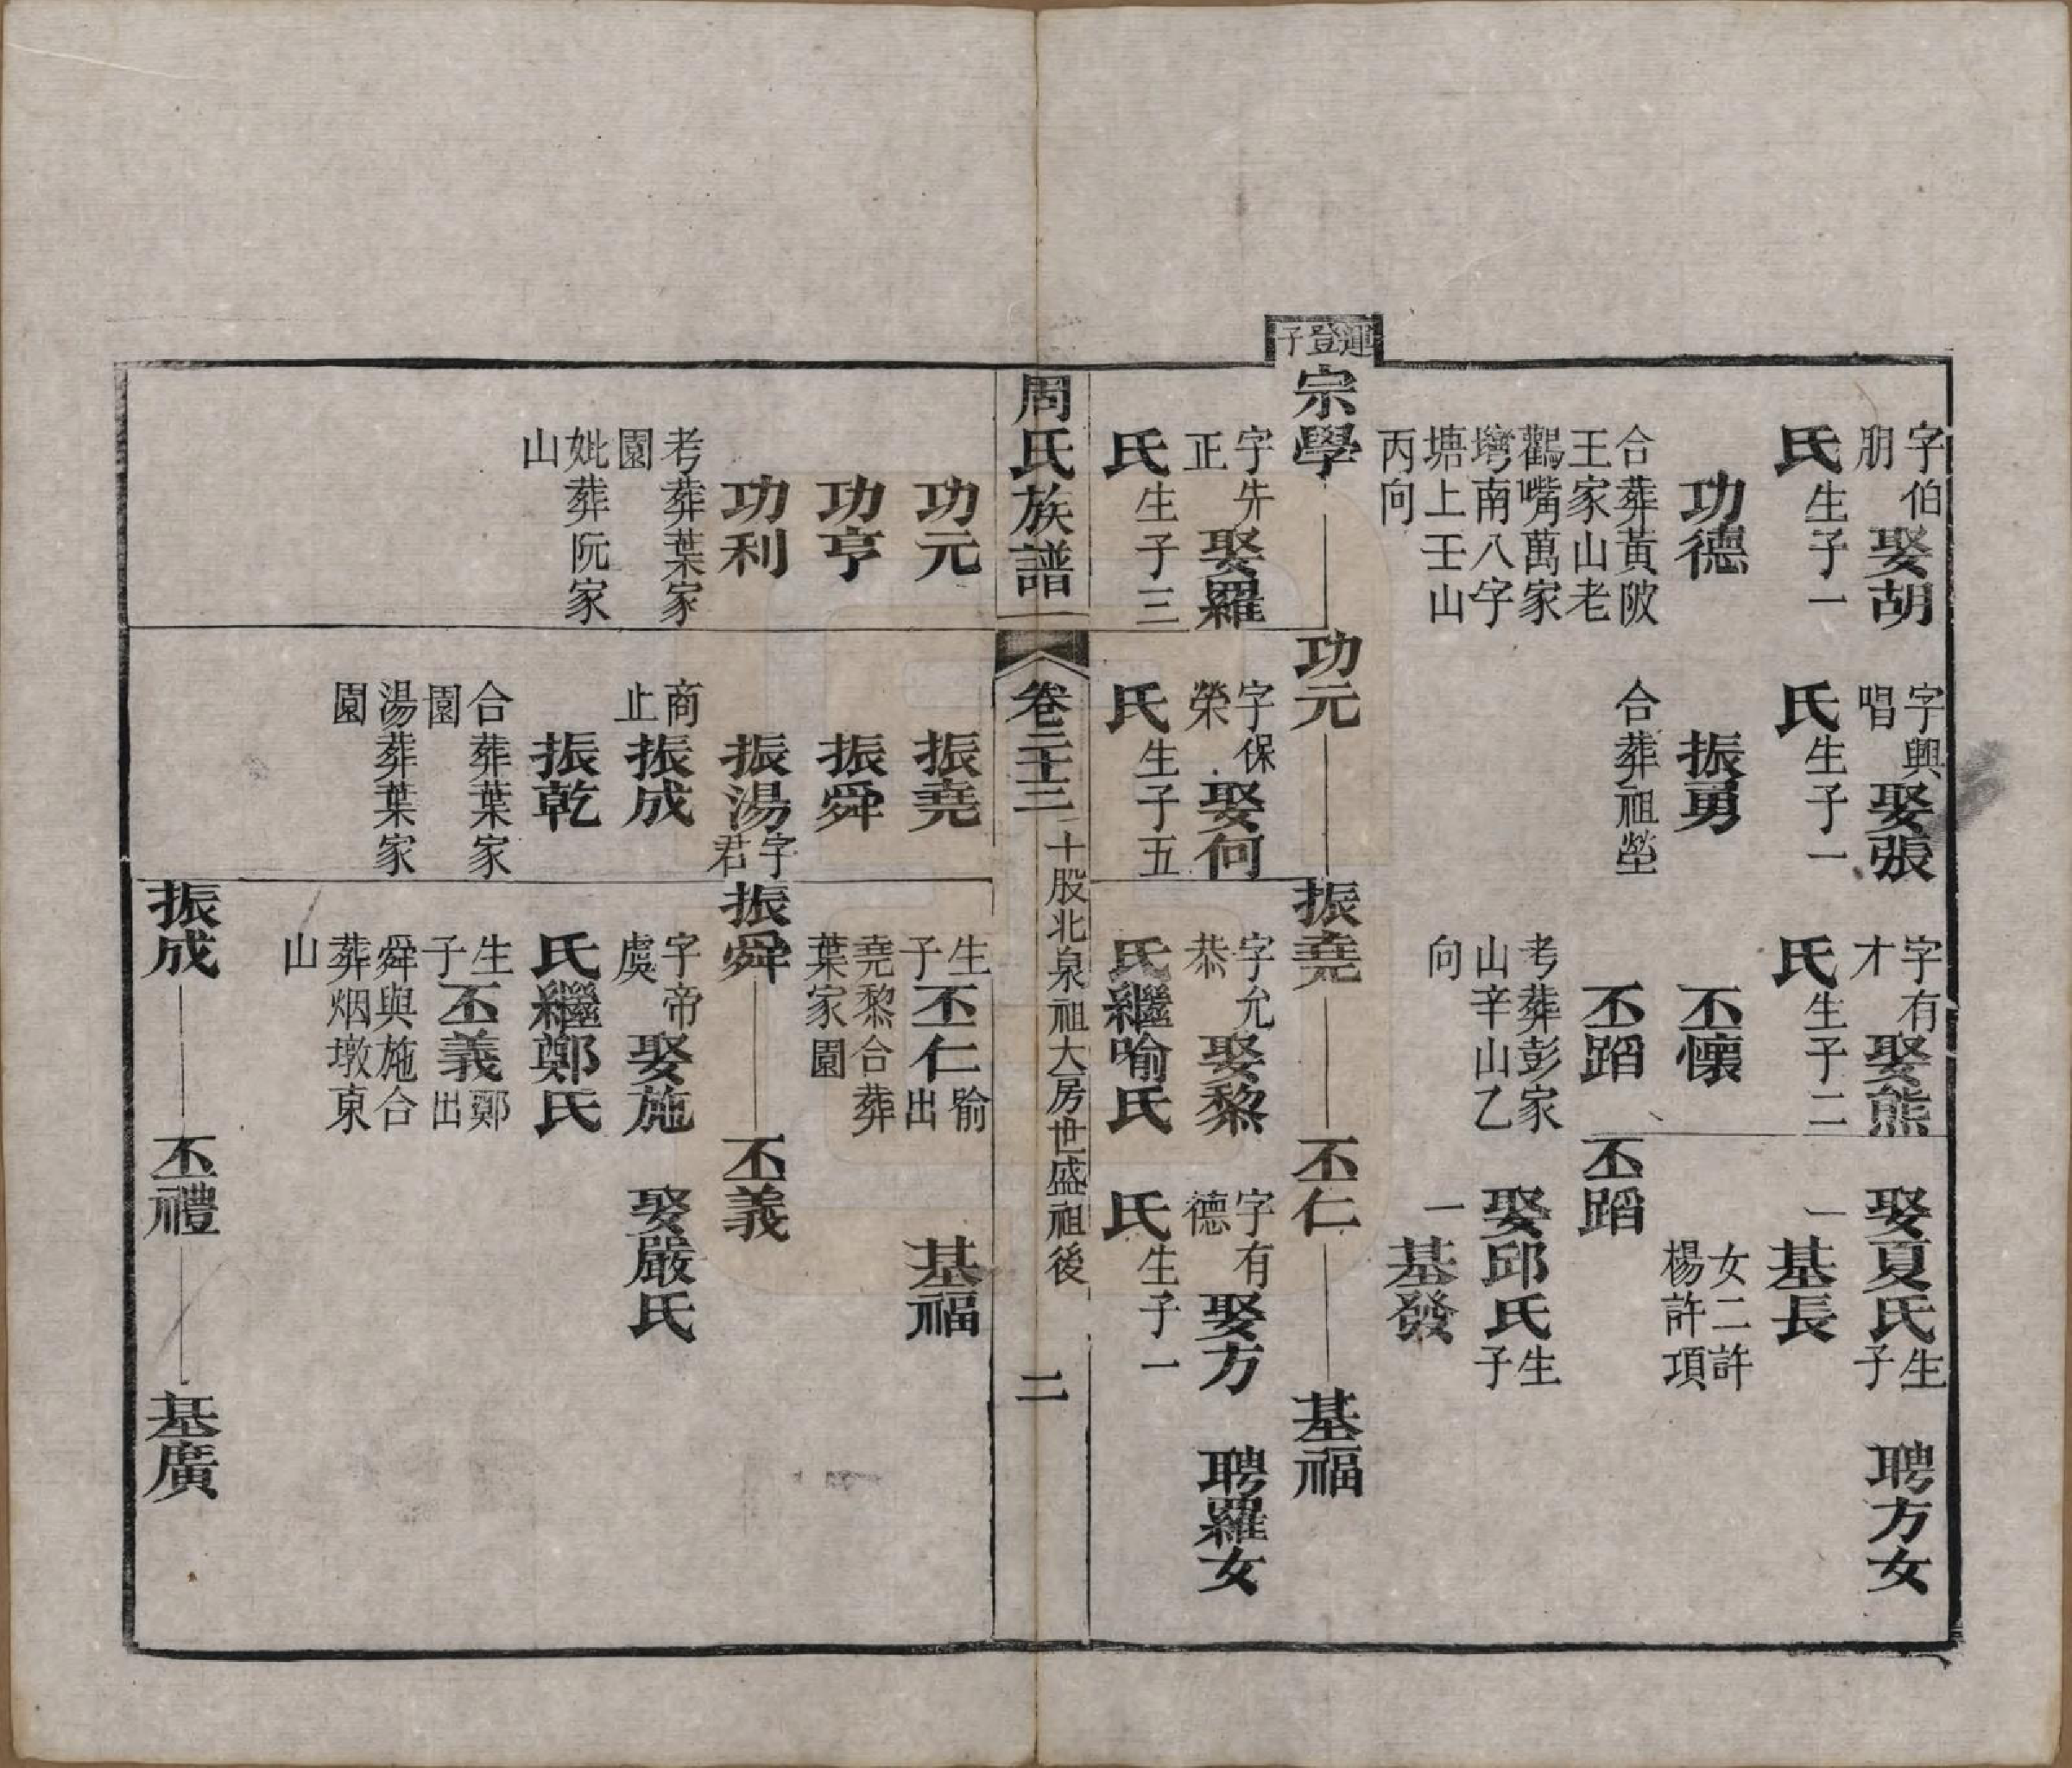 字伯朋娶胡
氏生子一
功德
合葬黃陂
王家山老
鸛嘴萬家
塆南八字
塘上壬山
丙向
字興唱娶張
氏生子一
振勇
合葬祖塋
字有才娶熊
氏生子二
丕懷
丕蹈
考葬彭家
山辛山乙
向
娶夏氏生子
一基長
女二許
楊許項
丕蹈
娶邱氏生子
一基發
聘方女
運登子
宗學
字先正娶羅
氏生子三
功元
字保榮娶何
氏生子五
振堯
字允恭娶黎
氏繼喻氏
丕仁
字有德娶方
氏生子一
基福
聘羅女
周氏族譜
卷二十三
十股北泉祖大房世盛祖後
二
功元
功亨
功利
考葬葉家
園
妣葬阮家
山
振堯
振舜
振湯字君
商止振成
振乾
合葬葉家
園
湯葬葉家
園
生子丕仁喻出
堯黎合葬
葉家園
振舜
字帝虞娶施
氏繼鄭氏
生子丕義鄭出
舜與施合
葬烟墩東
山
基福
丕義
娶嚴氏
振成
丕禮
基廣